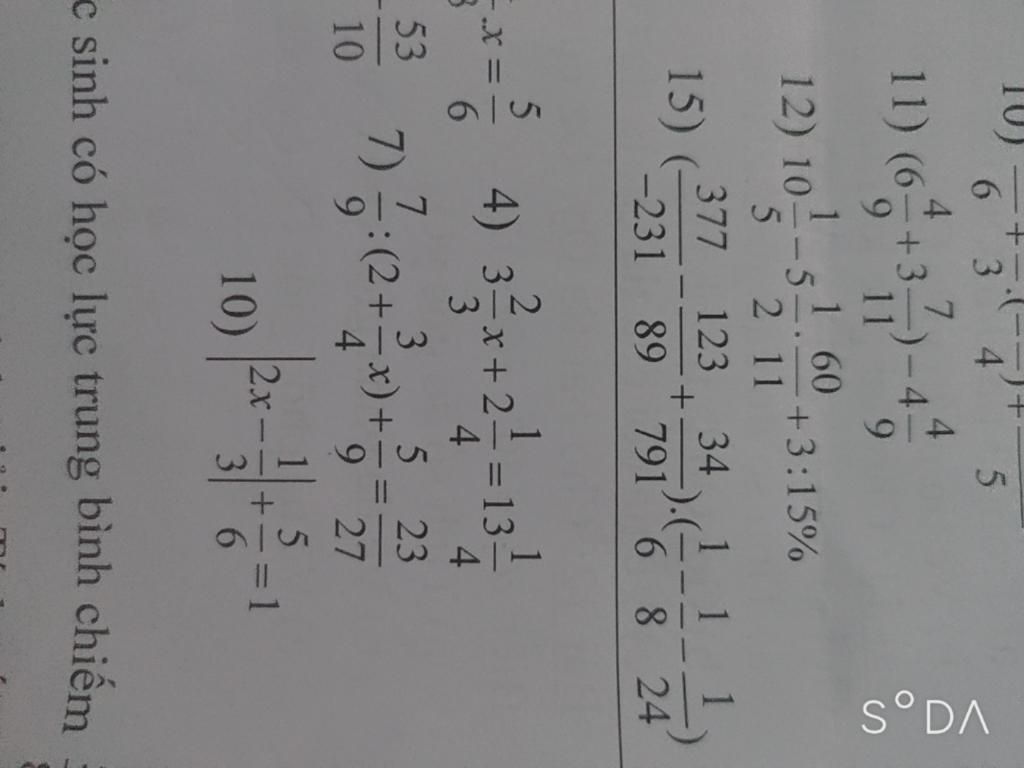 10) — + —.(—) + —
6 3 4 5
11) (6 4/9 + 3 7/11) − 4 4/9
12) 10 1/5 − 5 1/2 . 60/11 + 3 : 15%
15) (377/−231 − 123/89 + 34/791).(1/6 − 1/8 − 1/24)
.x = 5/6 4) 3 2/3 x + 2 1/4 = 13 1/4
53/10 7) 7/9 : (2 + 3/4 x) + 5/9 = 23/27
10) |2x − 1/3| + 5/6 = 1
c sinh có học lực trung bình chiếm
S°DΛ